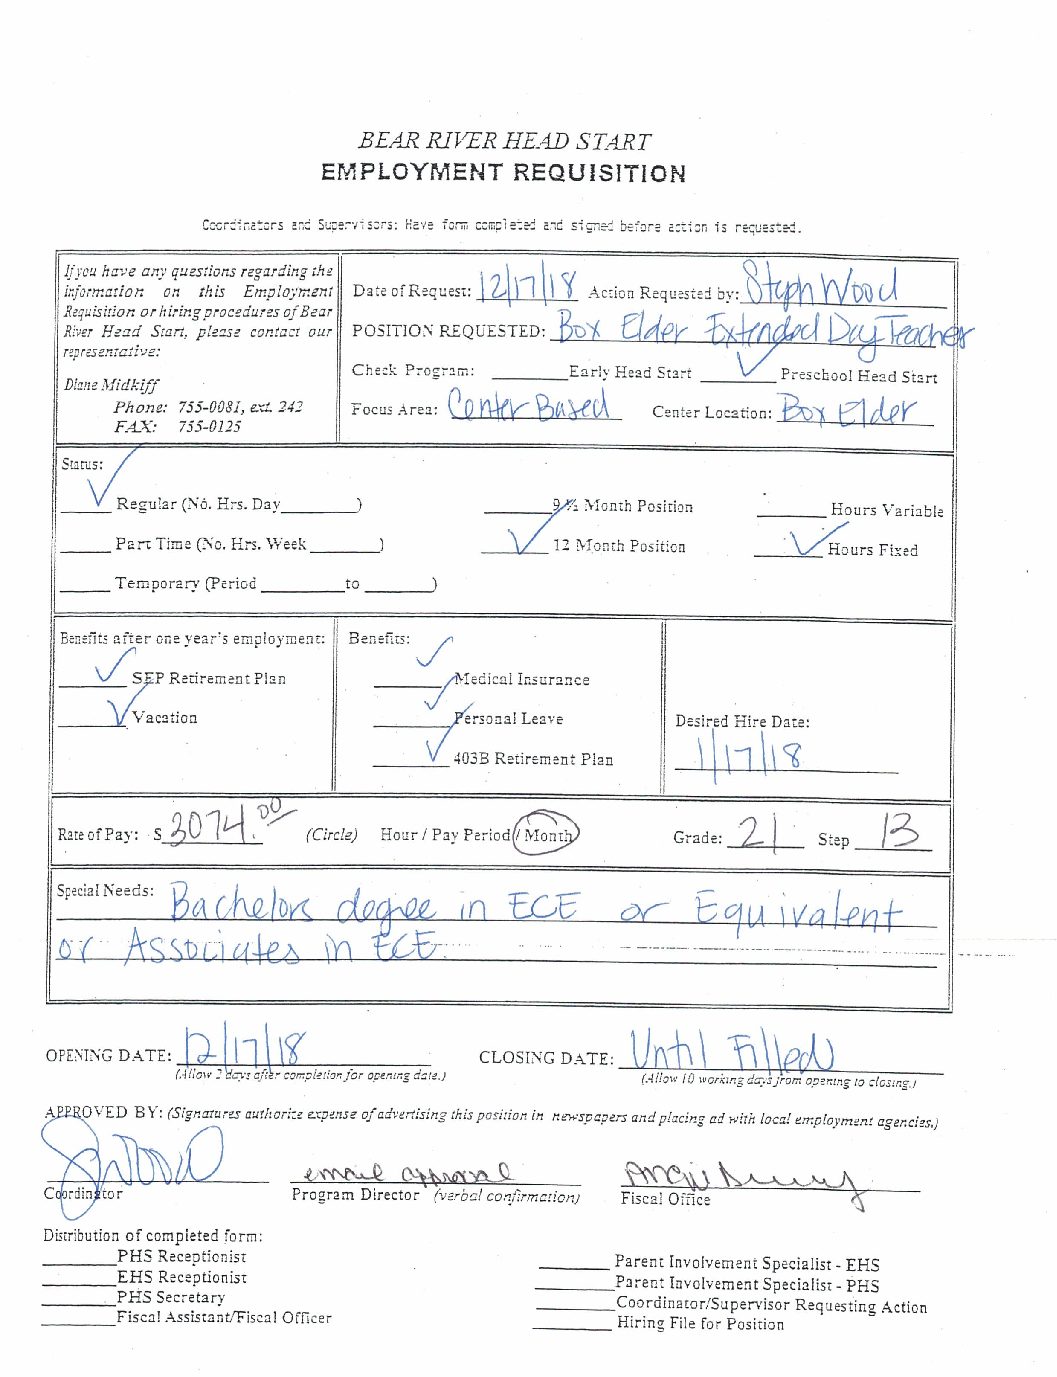 BEAR RIVER HEAD START
EMPLOYMENT REQUISITION
Coordinators and Supervisors: Have form completed and signed before action is requested.
If you have any questions regarding the
information on this Employment
Requisition or hiring procedures of Bear
River Head Start, please contact our
representative:
Diane Midkiff
Phone: 755-0081, ext. 242
FAX: 755-0125
Date of Request: 12/17/18 Action Requested by: Steph Wood
POSITION REQUESTED: Box Elder Extended Day Teacher
Check Program: ______ Early Head Start ✓ Preschool Head Start
Focus Area: Center Based Center Location: Box Elder
Status:
✓ Regular (No. Hrs. Day________) ______ 9 ½ Month Position ______ Hours Variable
______ Part Time (No. Hrs. Week ______) ✓ 12 Month Position ✓ Hours Fixed
______ Temporary (Period ________ to ______)
Benefits after one year's employment:
✓ SEP Retirement Plan
✓ Vacation
Benefits:
✓ Medical Insurance
✓ Personal Leave
✓ 403B Retirement Plan
Desired Hire Date:
1/17/18
Rate of Pay: $ 3074.00 (Circle) Hour / Pay Period / Month Grade: 21 Step 13
Special Needs: Bachelors degree in ECE or Equivalent
or Associates in ECE
OPENING DATE: 12/17/18 CLOSING DATE: Until Filled
(Allow 2 days after completion for opening date.) (Allow 10 working days from opening to closing.)
APPROVED BY: (Signatures authorize expense of advertising this position in newspapers and placing ad with local employment agencies.)
email approval
Coordinator Program Director (verbal confirmation) Fiscal Office
Distribution of completed form:
______ PHS Receptionist
______ EHS Receptionist
______ PHS Secretary
______ Fiscal Assistant/Fiscal Officer
______ Parent Involvement Specialist - EHS
______ Parent Involvement Specialist - PHS
______ Coordinator/Supervisor Requesting Action
______ Hiring File for Position